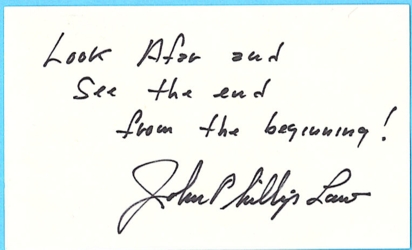 Look Afar and
See the end
from the beginning!
John Phillip Law